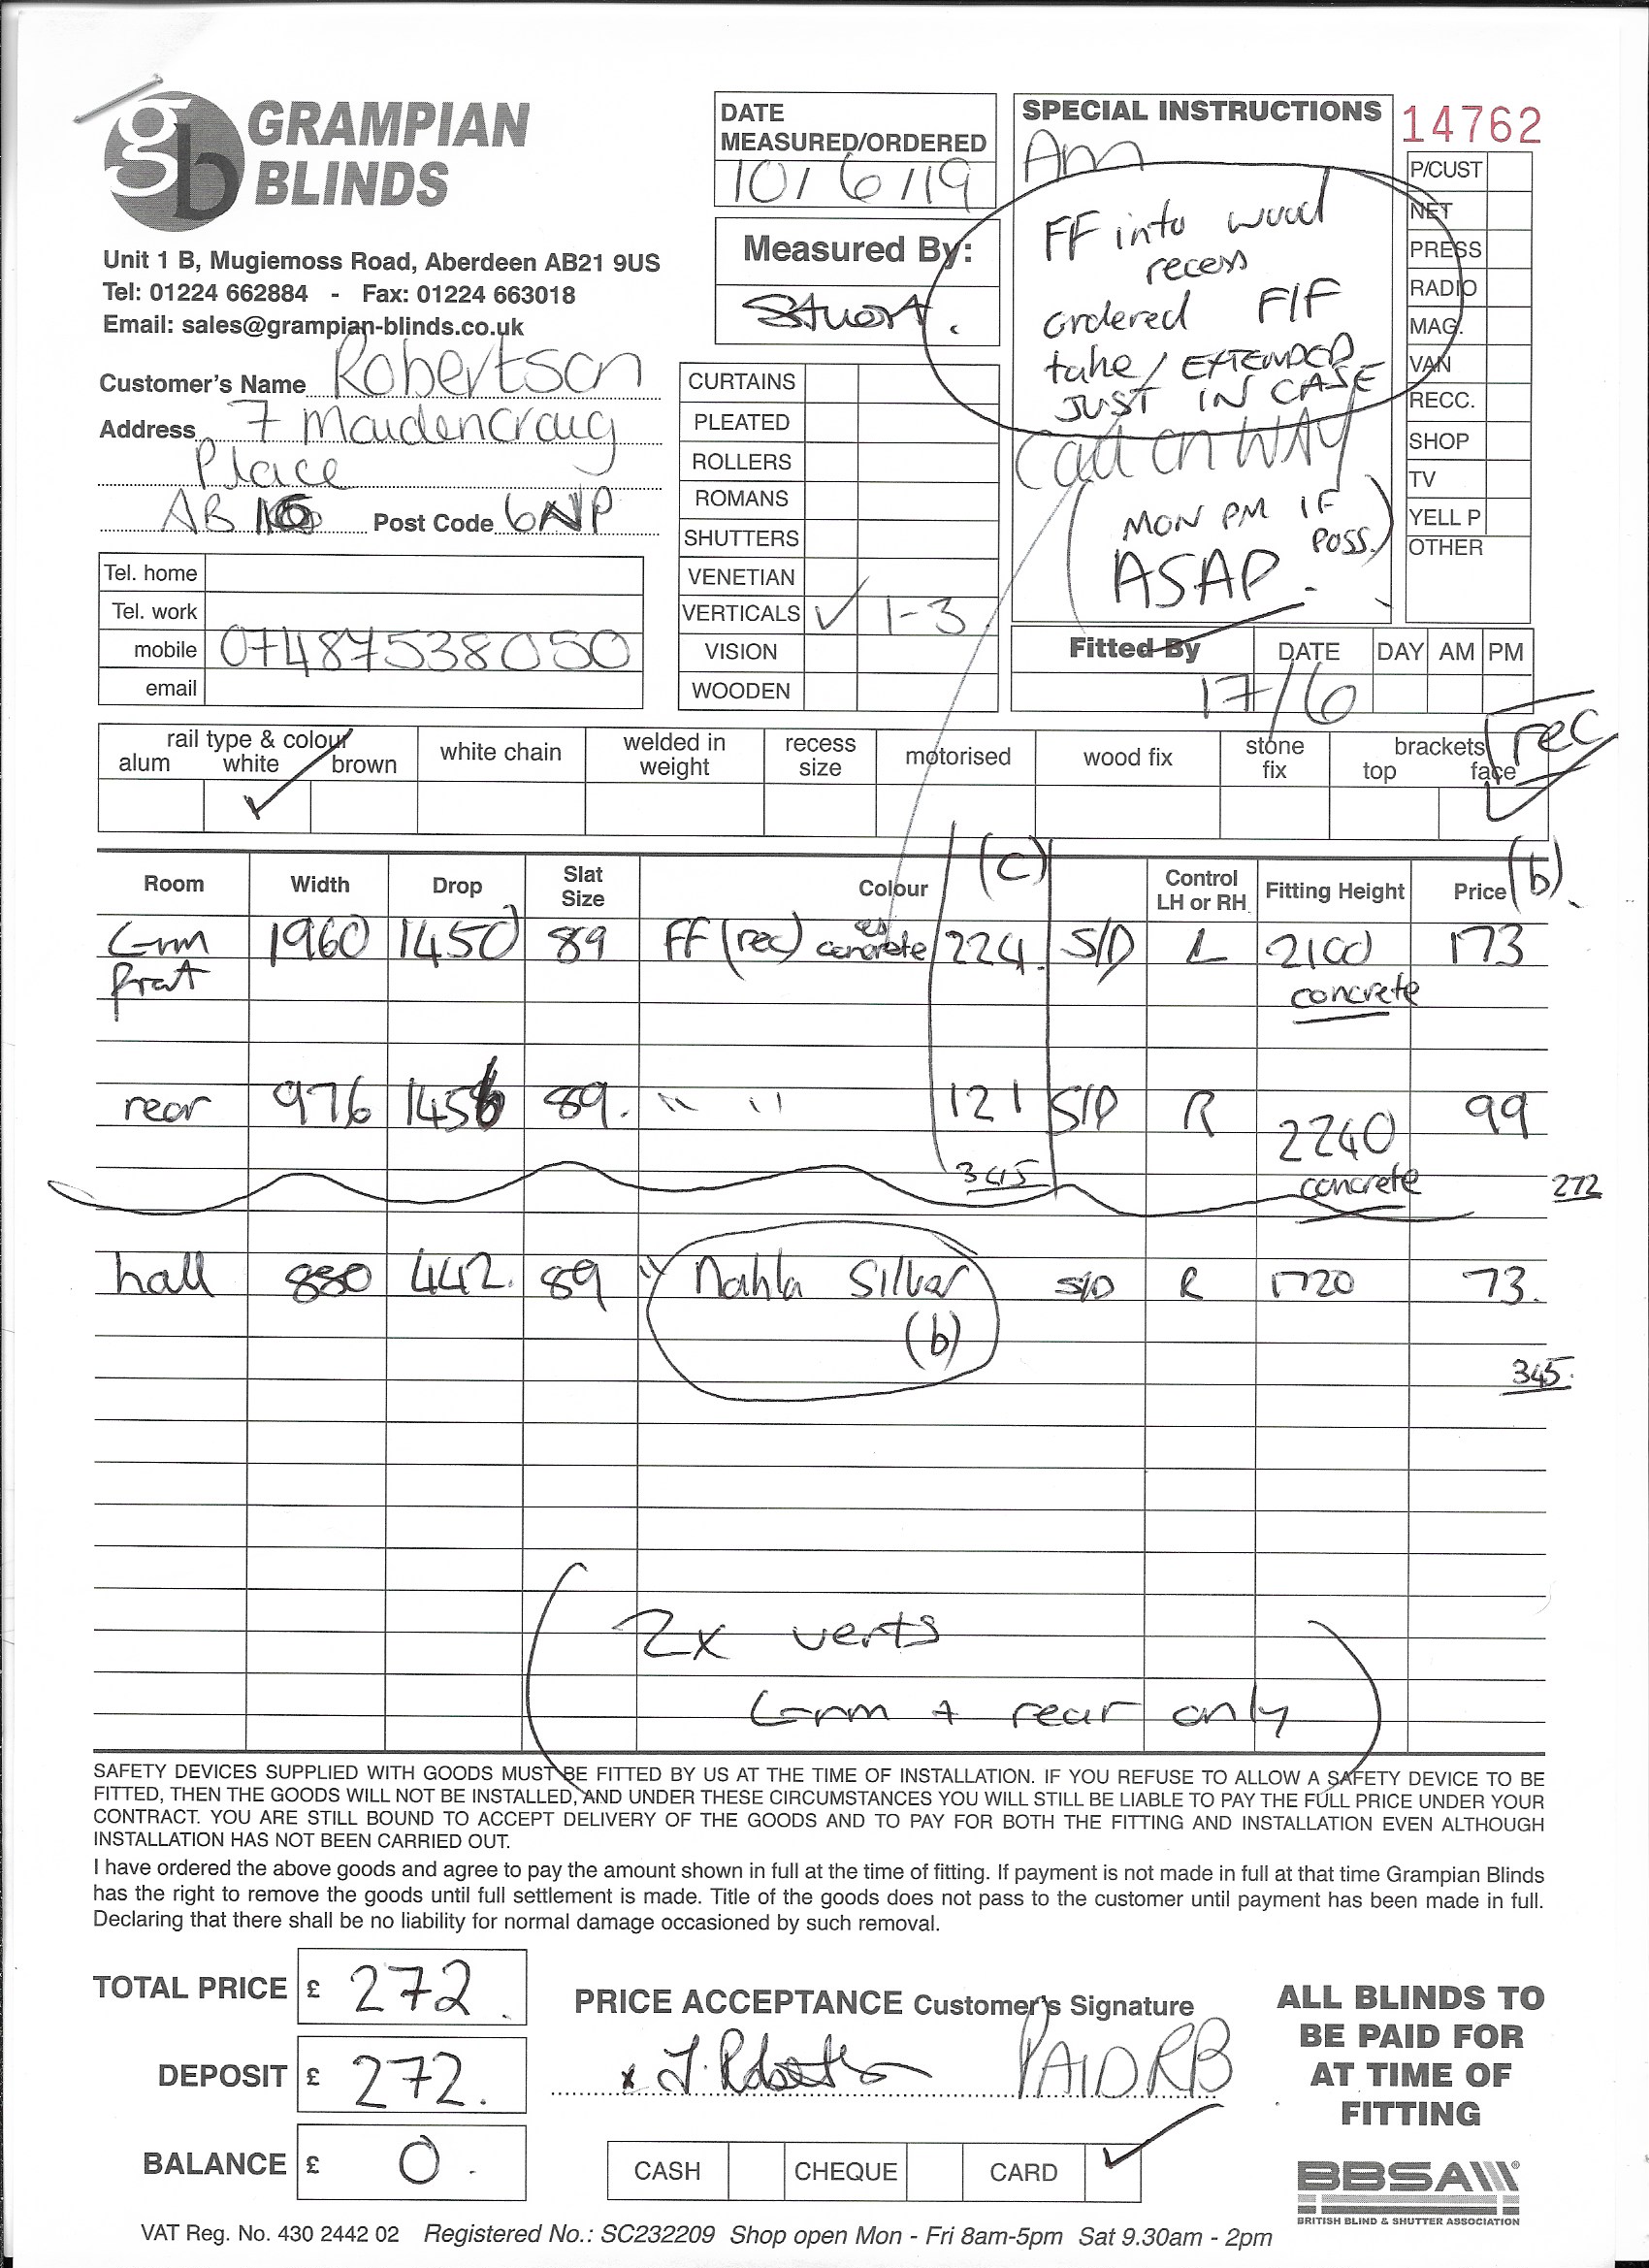 GRAMPIAN
BLINDS
Unit 1 B, Mugiemoss Road, Aberdeen AB21 9US
Tel: 01224 662884 - Fax: 01224 663018
Email: sales@grampian-blinds.co.uk
Customer's Name Robertson
Address 7 Maidencraig
Place
AB Post Code 6NP
Tel. home
Tel. work
mobile 07487538050
email
DATE
MEASURED/ORDERED
10/6/19
Measured By:
Stuart.
CURTAINS
PLEATED
ROLLERS
ROMANS
SHUTTERS
VENETIAN
VERTICALS ✓ 1-3
VISION
WOODEN
SPECIAL INSTRUCTIONS
Am
FF into wood
recess
ordered F/F
take / EXTENDED
JUST IN CASE
Call on WAY
(MON PM IF
POSS.)
ASAP
14762
P/CUST
NET
PRESS
RADIO
MAG.
VAN
RECC.
SHOP
TV
YELL P
OTHER
Fitted By DATE DAY AM PM
17/6
rail type & colour
alum white brown
white chain
welded in weight
recess size
motorised
wood fix
stone fix
brackets
top face
rec
✓ ✓
(c)
(b)
Room Width Drop Slat Size Colour Control LH or RH Fitting Height Price
L-rm 1960 1450 89 FF (rec) concrete 224 S/D L 2100 173
front concrete
rear 976 1456 89. " " 121 S/D R 2240 99
345 concrete 272
hall 880 442. 89 " Nahla Silver S/D R 1720 73.
(b)
345.
2x verts
L-rm + rear only
SAFETY DEVICES SUPPLIED WITH GOODS MUST BE FITTED BY US AT THE TIME OF INSTALLATION. IF YOU REFUSE TO ALLOW A SAFETY DEVICE TO BE
FITTED, THEN THE GOODS WILL NOT BE INSTALLED, AND UNDER THESE CIRCUMSTANCES YOU WILL STILL BE LIABLE TO PAY THE FULL PRICE UNDER YOUR
CONTRACT. YOU ARE STILL BOUND TO ACCEPT DELIVERY OF THE GOODS AND TO PAY FOR BOTH THE FITTING AND INSTALLATION EVEN ALTHOUGH
INSTALLATION HAS NOT BEEN CARRIED OUT.
I have ordered the above goods and agree to pay the amount shown in full at the time of fitting. If payment is not made in full at that time Grampian Blinds
has the right to remove the goods until full settlement is made. Title of the goods does not pass to the customer until payment has been made in full.
Declaring that there shall be no liability for normal damage occasioned by such removal.
TOTAL PRICE £ 272.
DEPOSIT £ 272.
BALANCE £ 0.
PRICE ACCEPTANCE Customer's Signature
x J. Robertson PAID RB
CASH CHEQUE CARD ✓
ALL BLINDS TO
BE PAID FOR
AT TIME OF
FITTING
BBSA
BRITISH BLIND & SHUTTER ASSOCIATION
VAT Reg. No. 430 2442 02 Registered No.: SC232209 Shop open Mon - Fri 8am-5pm Sat 9.30am - 2pm